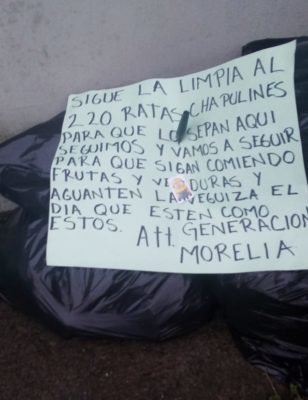 SIGUE LA LIMPIA AL
220 RATAS CHAPULINES
PARA QUE LO SEPAN AQUI
SEGUIMOS Y VAMOS A SEGUIR
PARA QUE SIGAN COMIENDO
FRUTAS Y VERDURAS Y
AGUANTEN LA VEGUIZA EL
DIA QUE ESTEN COMO
ESTOS. Att. GENERACION
MORELIA